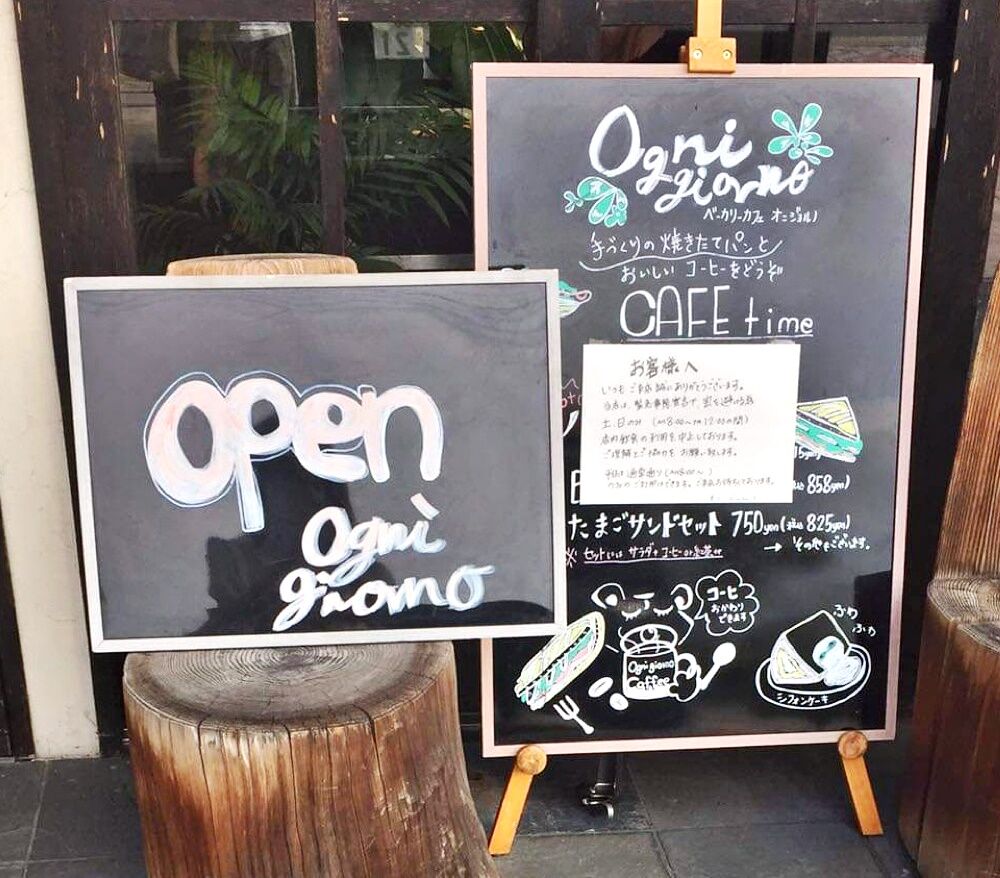 21
Open
Ogni
giorno
Ogni
giorno
ベーカリーカフェ オニジョルノ
手づくりの焼きたてパンと
おいしい コーヒーをどうぞ
CAFE time
お客様へ
いつも ご来店 誠にありがとうございます。
当店は、緊急事態宣言で、密を避ける為
土、日のみ (AM8:00〜PM12:00の間)
店内飲食の利用を中止しております。
ご理解とご協力を お願い致します。
平日は通常通り (AM8:00〜 )
858yen)
たまごサンドセット 750yen (税込 825yen)
※ セットには サラダ+コーヒーor紅茶付
→ その他もございます。
コーヒー
おかわり
できます
Ogni giorno
Coffee
ふわ
ふわ
シフォンケーキ